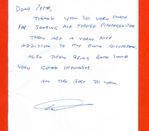 Dear Peter,
Thank you so very much
for sending me these photographs
They are a very nice
addition to my own collection
Also they bring back some
very good memories.
All the best to you